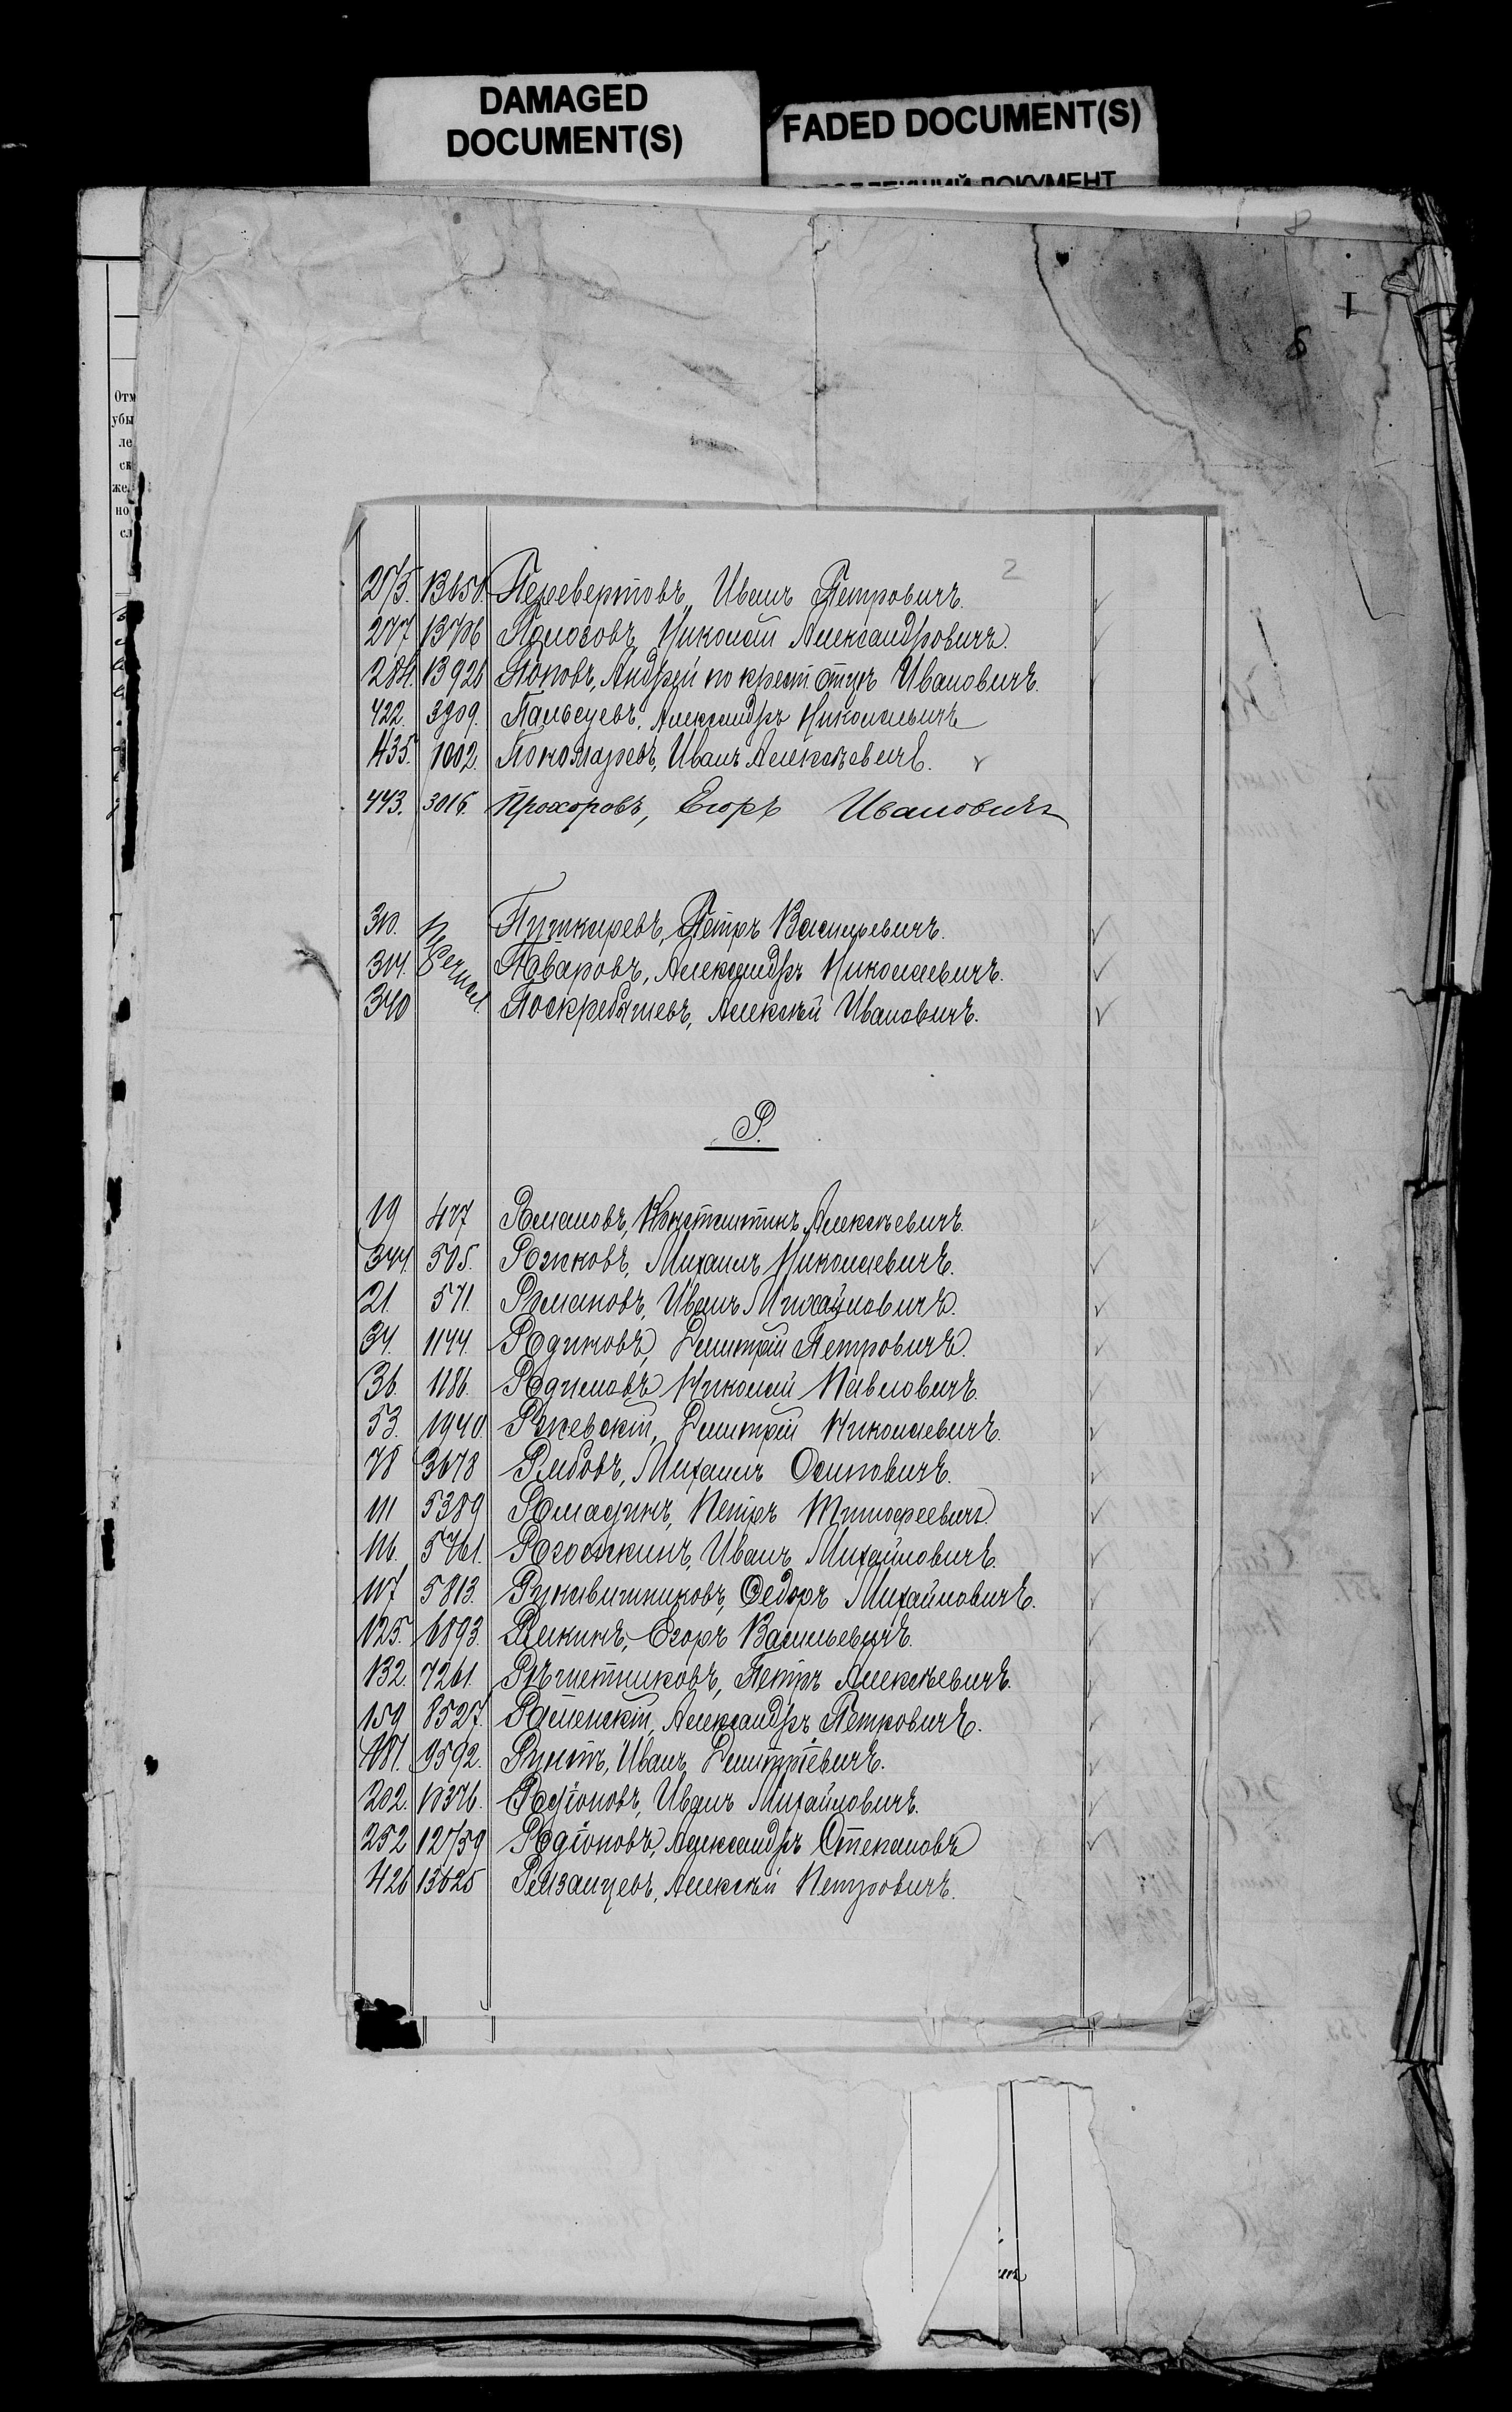 DAMAGED
DOCUMENT(S)
FADED DOCUMENT(S)
2
275. 13650 Перевертовъ, Иванъ Петровичъ.
277 13706 Полосовъ, Николай Александровичъ.
284. 13920 Поповъ, Андрей по крест. отцѣ Ивановичъ.
422. 3909. Пальцевъ, Александръ Николаевичъ
435. 1002. Пономаревъ, Иванъ Алексѣевичъ.
443. 3016. Прохоровъ, Егоръ Ивановичъ
310. Пушкаревъ, Петръ Васильевичъ.
314. Поваровъ, Александръ Николаевичъ.
340 Поскребышевъ, Алексѣй Ивановичъ.
Р.
19 477 Романовъ, Константинъ Алексѣевичъ.
344. 505. Рожковъ, Михаилъ Николаевичъ.
21. 571. Романовъ, Иванъ Михайловичъ.
34. 1144. Родиковъ, Дмитрій Петровичъ.
36. 1186. Родимовъ Николай Павловичъ.
53. 1940 Ржевскій, Дмитрій Николаевичъ.
78 3678 Рябовъ, Михаилъ Осиповичъ.
111 5389 Ромадинъ, Петръ Тимофеевичъ.
116. 5761. Рогожкинъ, Иванъ Михайловичъ.
117 5813. Рукавишниковъ, Федоръ Михайловичъ.
125. 6893. Рѣпкинъ, Егоръ Васильевичъ.
132. 7261. Рѣшетниковъ, Петръ Алексѣевичъ.
159 8527. Раменскій, Александръ Петровичъ.
181. 9592. Рунтъ, Иванъ Дмитріевичъ.
202. 10376. Родіоновъ, Иванъ Михайловичъ.
252 12759 Родіоновъ, Александръ Степановъ
426 13025 Рязанцевъ, Алексѣй Петровичъ.